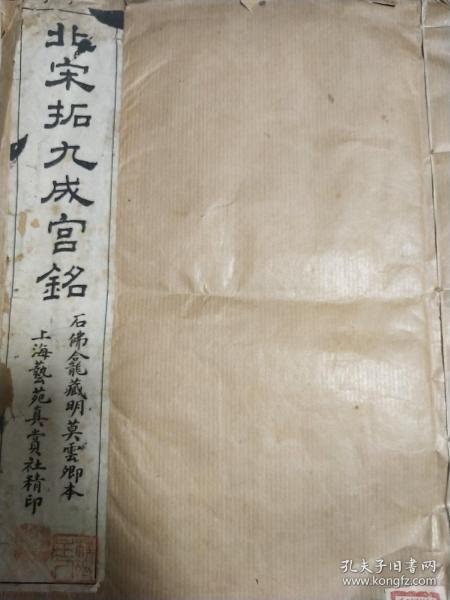 北宋拓九成宫銘
石佛龕藏明莫雲卿本
上海藝苑真賞社精印
孔夫子旧书网
www.kongfz.com